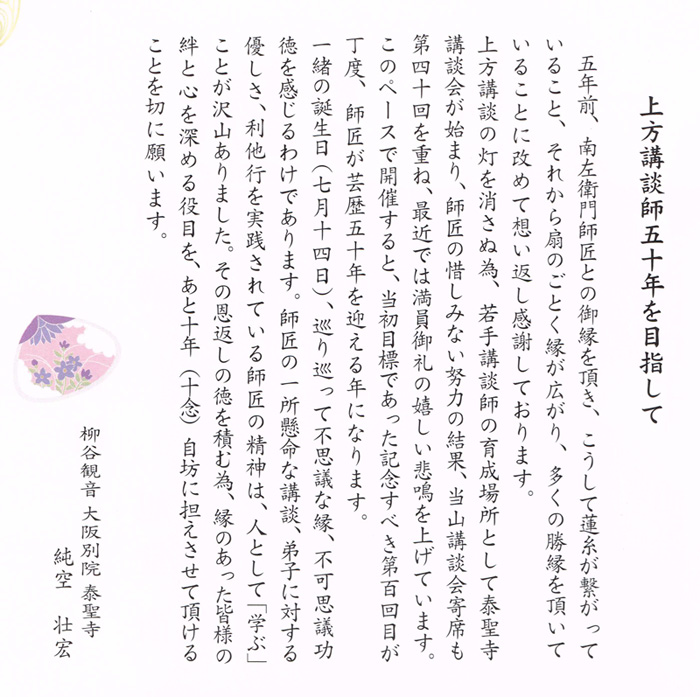 上方講談師五十年を目指して
五年前、南左衛門師匠との御縁を頂き、こうして蓮糸が繋がって
いること、それから扇のごとく縁が広がり、多くの勝縁を頂いて
いることに改めて想い返し感謝しております。
上方講談の灯を消さぬ為、若手講談師の育成場所として泰聖寺
講談会が始まり、師匠の惜しみない努力の結果、当山講談会寄席も
第四十回を重ね、最近では満員御礼の嬉しい悲鳴を上げています。
このペースで開催すると、当初目標であった記念すべき第百回目が
丁度、師匠が芸歴五十年を迎える年になります。
一緒の誕生日（七月十四日）、巡り巡って不思議な縁、不可思議功
徳を感じるわけであります。師匠の一所懸命な講談、弟子に対する
優しさ、利他行を実践されている師匠の精神は、人として「学ぶ」
ことが沢山ありました。その恩返しの徳を積む為、縁のあった皆様の
絆と心を深める役目を、あと十年（十念）自坊に担えさせて頂ける
ことを切に願います。
柳谷観音 大阪別院 泰聖寺
純空 壮宏